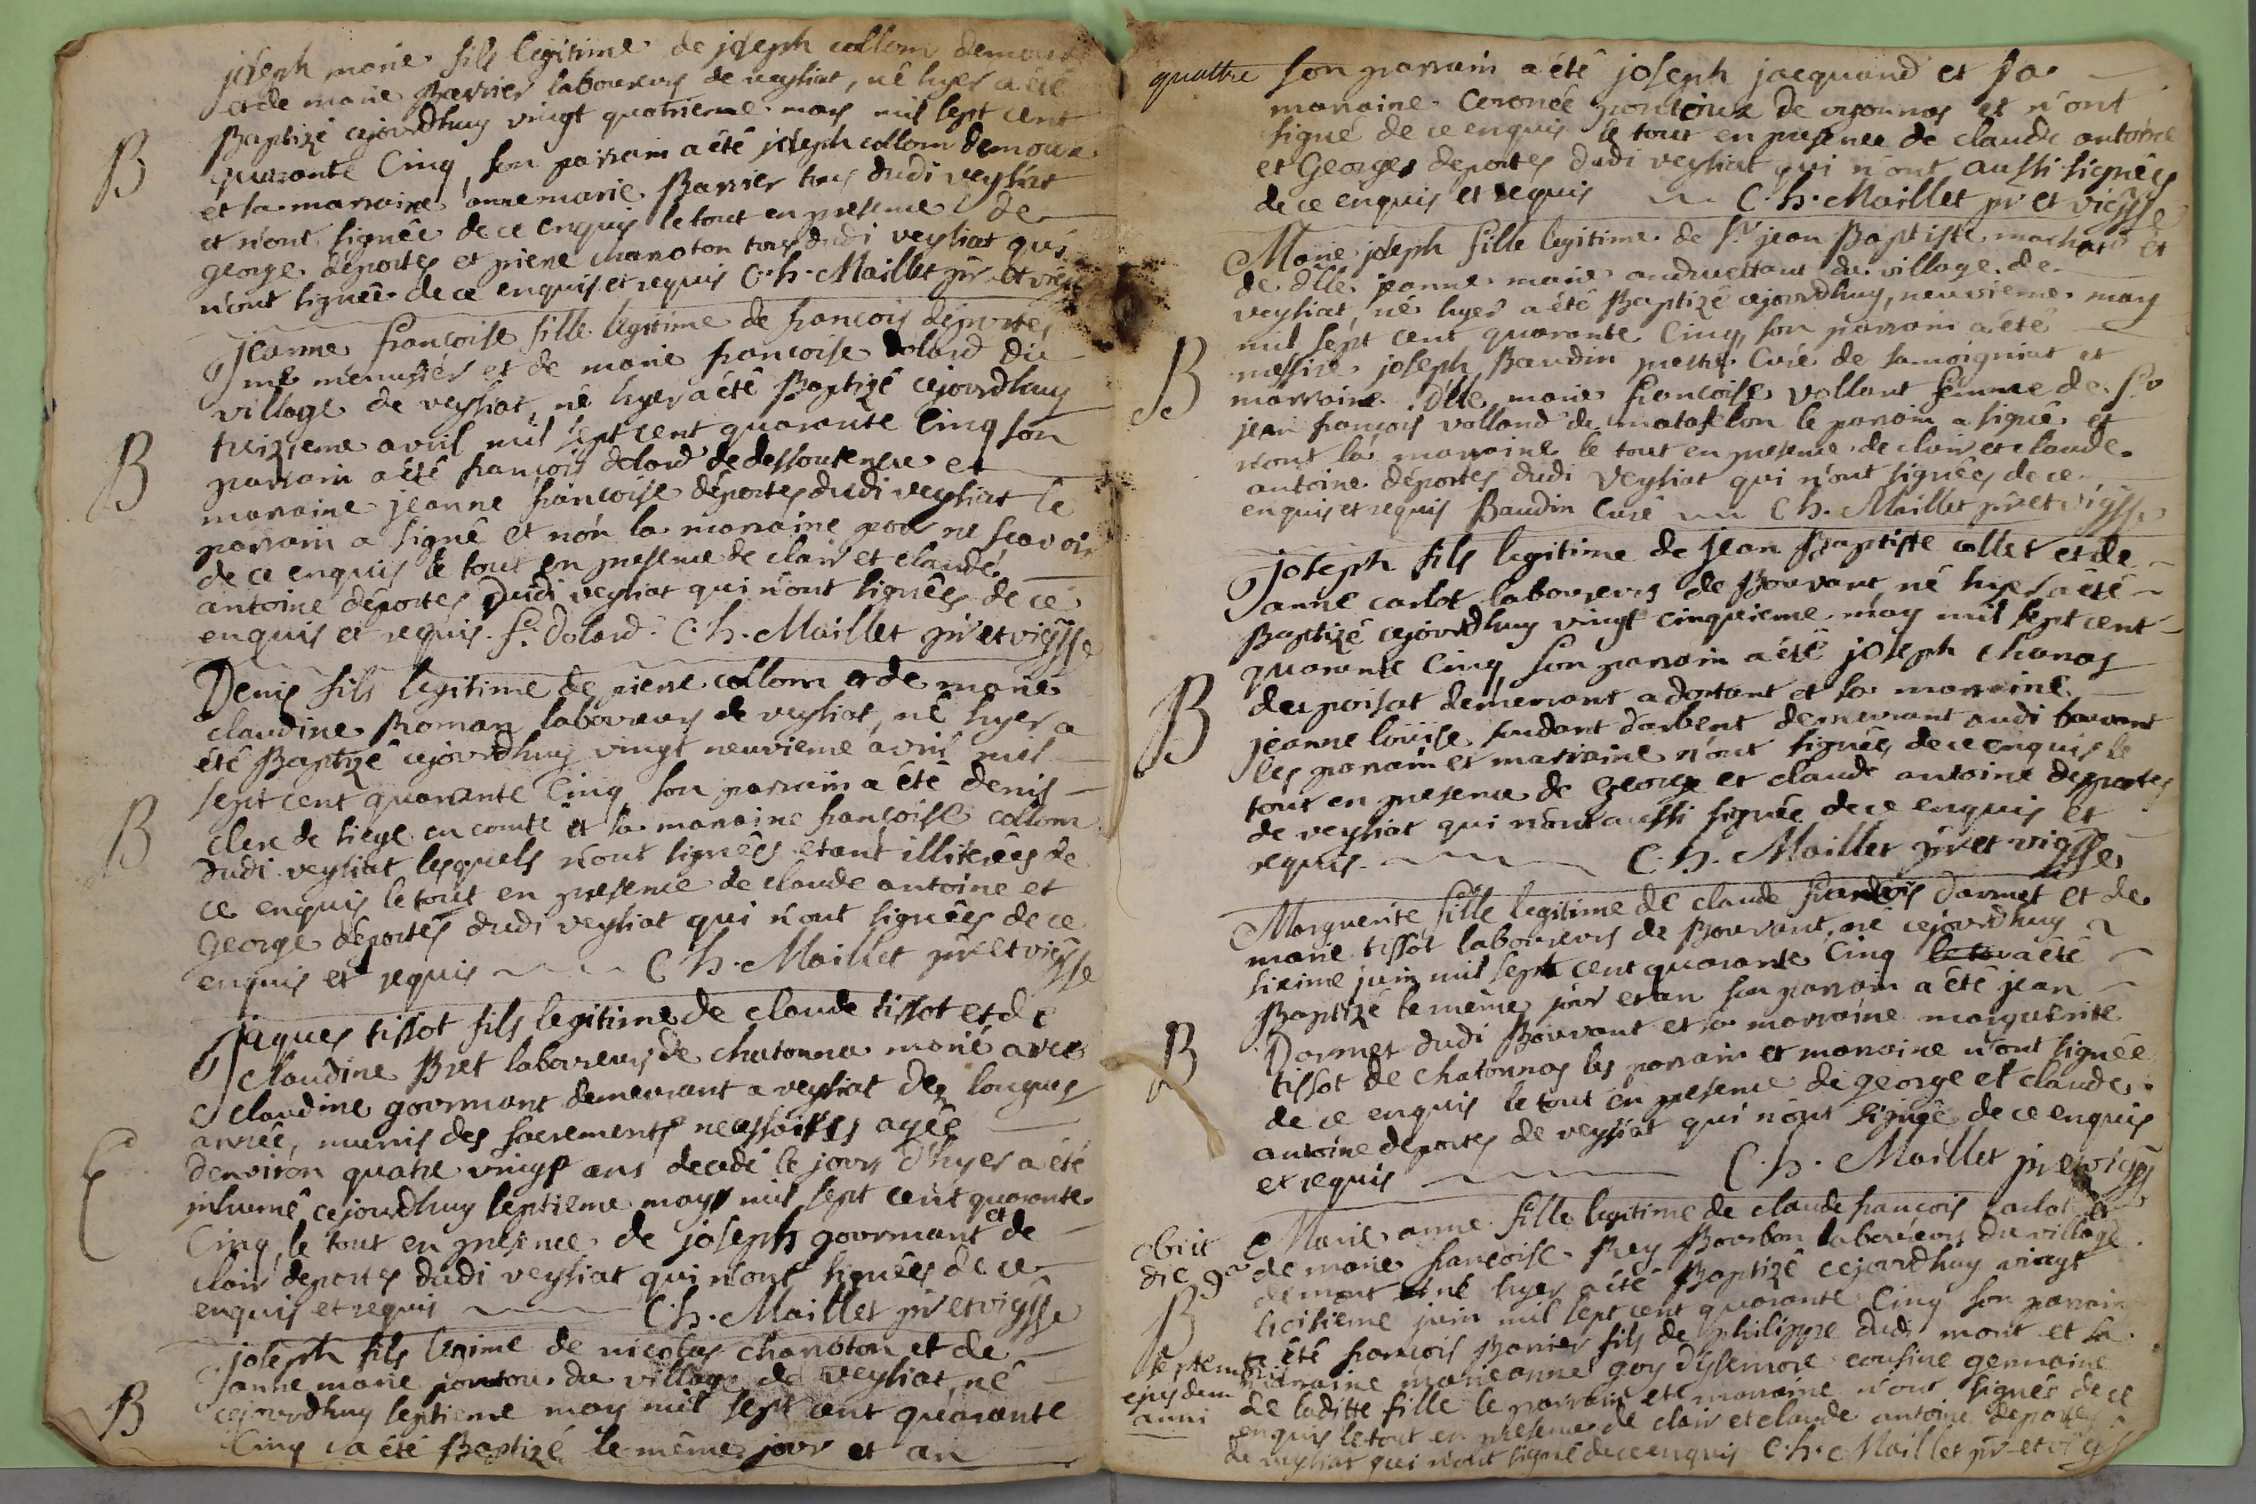 joseph marie fils legitime de joseph collom demoux
et de marie Barrier laboureurs de veyliat, né hyer a été
Baptizé cejourdhuy vingt quatrieme mars mil sept cent
B
quarante Cinq, son parrain a été joseph collom demoux
et sa marraine anne marie Barrier tous dudi veyliat
et n'ont signée de ce enquis le tout en presence de
george déportes et piere chanoton tous dudi veyliat qui
n'ont signée de ce enquis et requis C. h. Maillet pr et vic
Jeanne francoise fille legitime de françois déportes
me menusiér et de marie francoise dolard du
village de veyliat, né hyer a été Baptizé cejourdhuy
treizieme avril mil sept cent quarante Cinq son
B
parrain a été françois dolard de dessoutene et
marraine jeanne françoise déportes dudi veyliat le
parrain a signé et nón la marraine pour ne scavoir
de ce enquis le tout en presence de clair et claude
antoine déportes dudi veyliat qui n'ont signées de ce
enquis et requis. f. Dolard. C. h. Maillet pr et vic
Denis fils legitime de piere collom et de marie
claudine Roman laboureurs de veyliat, né hyer a
été Baptizé cejourdhuy vingt neuvieme avril mil
sept cent quarante Cinq son parrain a été denis
B
clerc de siege en comté et sa marraine françoise collom
dudi veyliat lesquels n'ont signées etant illiterées de
ce enquis le tout en presence de claude antoine et
george déportes dudi veyliat qui n'ont signées de ce
enquis et requis C. h. Maillet pr et vic
Jaques tissot fils legitime de claude tissot et de
claudine Bret laboureurs de chatonna marié avec
claudine gourmant demeurant a veyliat dez longues
année, munis des sacrements necessaires agée
E
denviron quatre vingt ans decedé le jours d'hyer a été
inhumé cejourdhuy septieme may mil sept cent quarante
Cinq le tout en presence de joseph gourmant et de
clair déportes dudi veyliat qui n'ont signées de ce
enquis et requis C. h. Maillet pr et vic
joseph fils legime de nicolas chanoton et de
anne marie pontou du village de veyliat, né
B
cejourdhuy septieme may mil sept cent quarante
Cinq a été Baptizé le même jour et an
quattre son parrain a été joseph jacquand et sa
marraine de et n'ont
signé de ce enquis le tout en presence de claude antoine
et George deportes dudi veyliat qui n'ont aussi signées
de ce enquis et requis C. h. Maillet pr et vic
Marie joseph fille legitime de sr jean Baptiste et
de dlle jeanne marie du village de
veyliat, né hyer a été Baptizé cejourdhuy, neuvieme may
mil sept cent quarante Cinq, son parrain a été
B
messire joseph Baudin prestre Curé de samoigniat et
marraine dlle marie francoise volland femme de sr
jean françois volland de matafelon le parrain a signé et
n'ont la marraine le tout en presence de clair et claude
antoine déportes dudi Veyliat qui n'ont signées de ce
enquis et requis Baudin Curé C. h. Maillet pr et vic
Joseph fils legitime de jean Baptiste collet et de
anne carlot laboureurs de Bouvant, né hyer a été
Baptizé cejourdhuy vingt cinquieme may mil sept cent
quarante Cinq son parrain a été joseph chanas
B
du poisat demeurant a dortant et sa marraine
jeanne loüise d'arbent demeurant audi bouvant
les parrain et marraine n'ont signées de ce enquis le
tout en presence de George et claude antoine deportes
de veyliat qui n'ont aussi signée de ce enquis et
requis C. h. Maillet pr et vic
Marguerite fille legitime de claude françois Darmet et de
marie tissot laboureurs de Bouvant, né cejourdhuy
sixieme juin mil sept cent quarante Cinq a été
Baptizé le même jour et an son parrain a été jean
B
Darmet dudi Bouvant et sa marraine marguerite
tissot de chatonnas les parrain et marraine n'ont signée
de ce enquis le tout en presence de george et claude
antoine deportes de veyliat qui n'ont signée de ce enquis
et requis C. h. Maillet pr et vic
Marie anne fille legitime de claude françois carlot et
obiit
die 9a
de marie françoise Rey Bourbon laboureurs du village
de mont né hyer a été Baptizé cejourdhuy vingt
B
troisieme juin mil sept cent quarante Cinq son parrain
a été françois Barrier fils de philippe dudi mont et sa
septembris
marraine marieanne goy d'ysernore cousine germaine
ejusdem
de laditte fille le parrain et marraine n'ont signée de ce
anni
enquis le tout en presence de clair et claude antoine deportes
de veyliat qui n'ont signé de ce enquis C. h. Maillet pr et vic